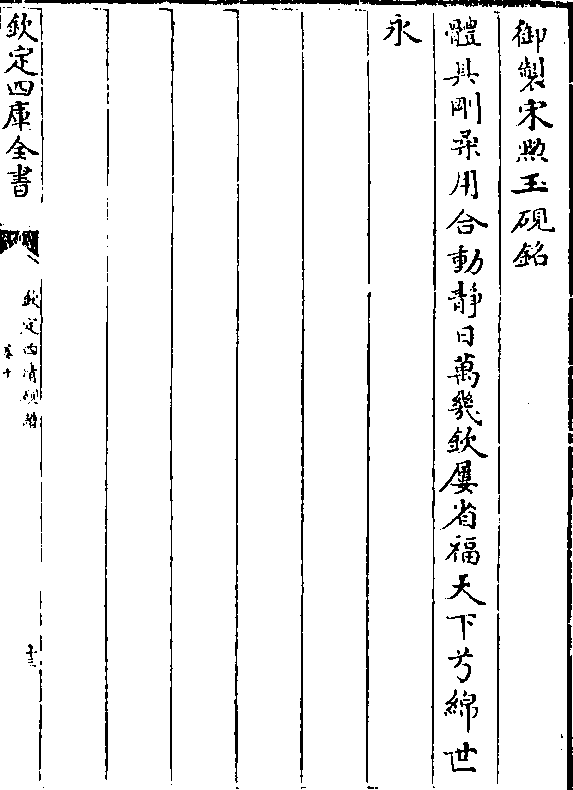 御製宋㸃玉硯銘
體具剛柔用合動靜日萬幾欽屢省福天下兮綿世
永
欽定四庫全書
欽定西清硯譜
卷十
十三